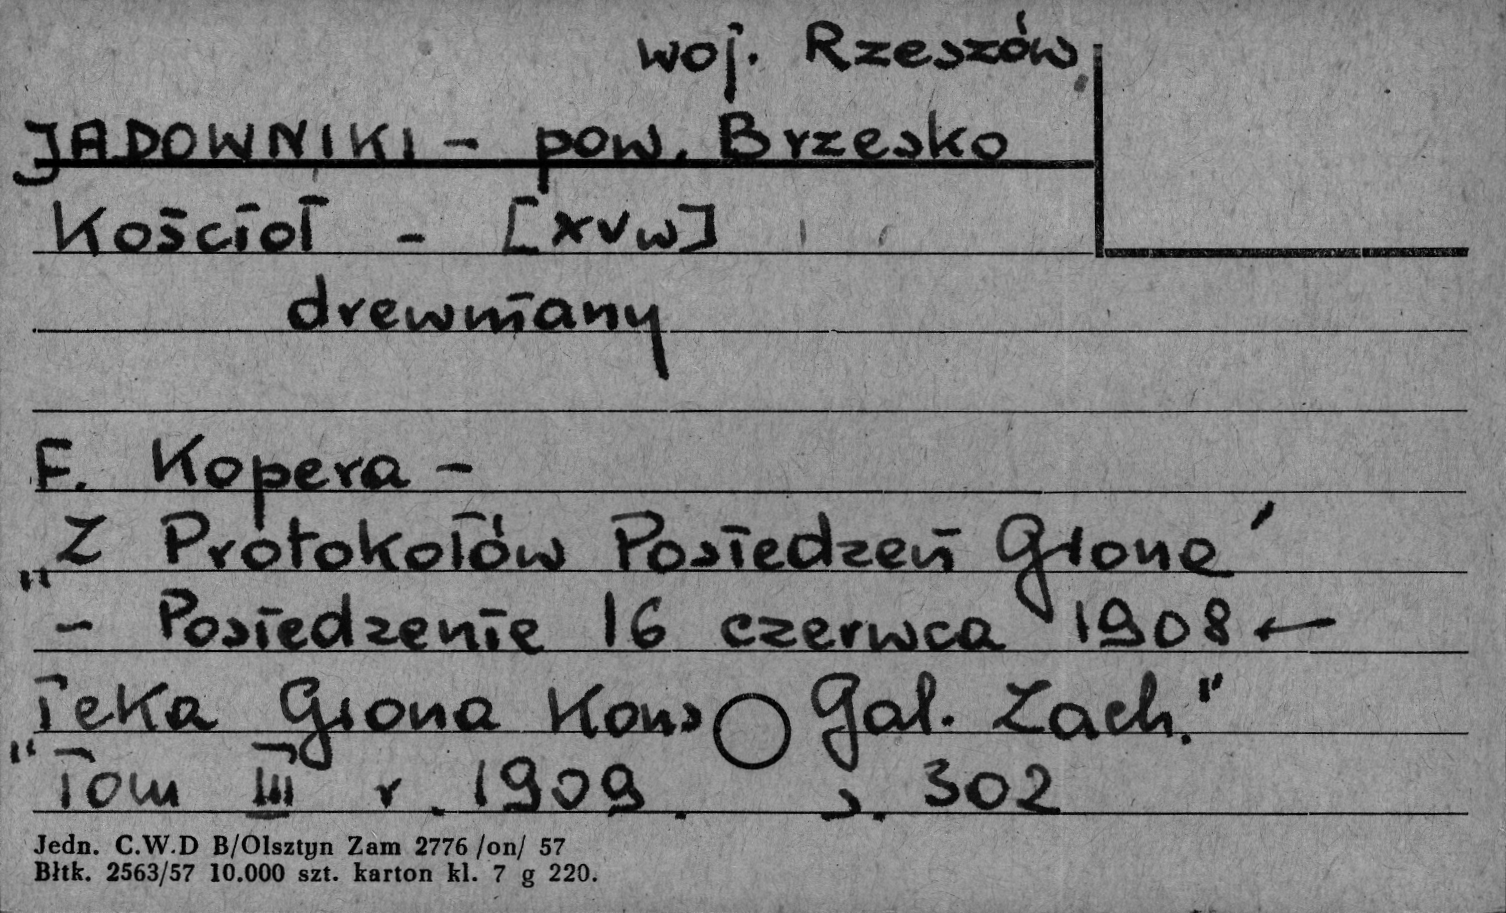 woj. Rzeszów
JADOWNIKI - pow. Brzesko
Kościoł - [XV w]
drewniany
F. Kopera -
"Z Protokołów Posiedzeń Grona"
- Posiedzenie 16 czerwca 1908 ←
"Teka Grona Kons Gal. Zach."
Tom III r. 1909. s. 302
Jedn. C.W.D B/Olsztyn Zam 2776 /on/ 57
Błtk. 2563/57 10.000 szt. karton kl. 7 g 220.